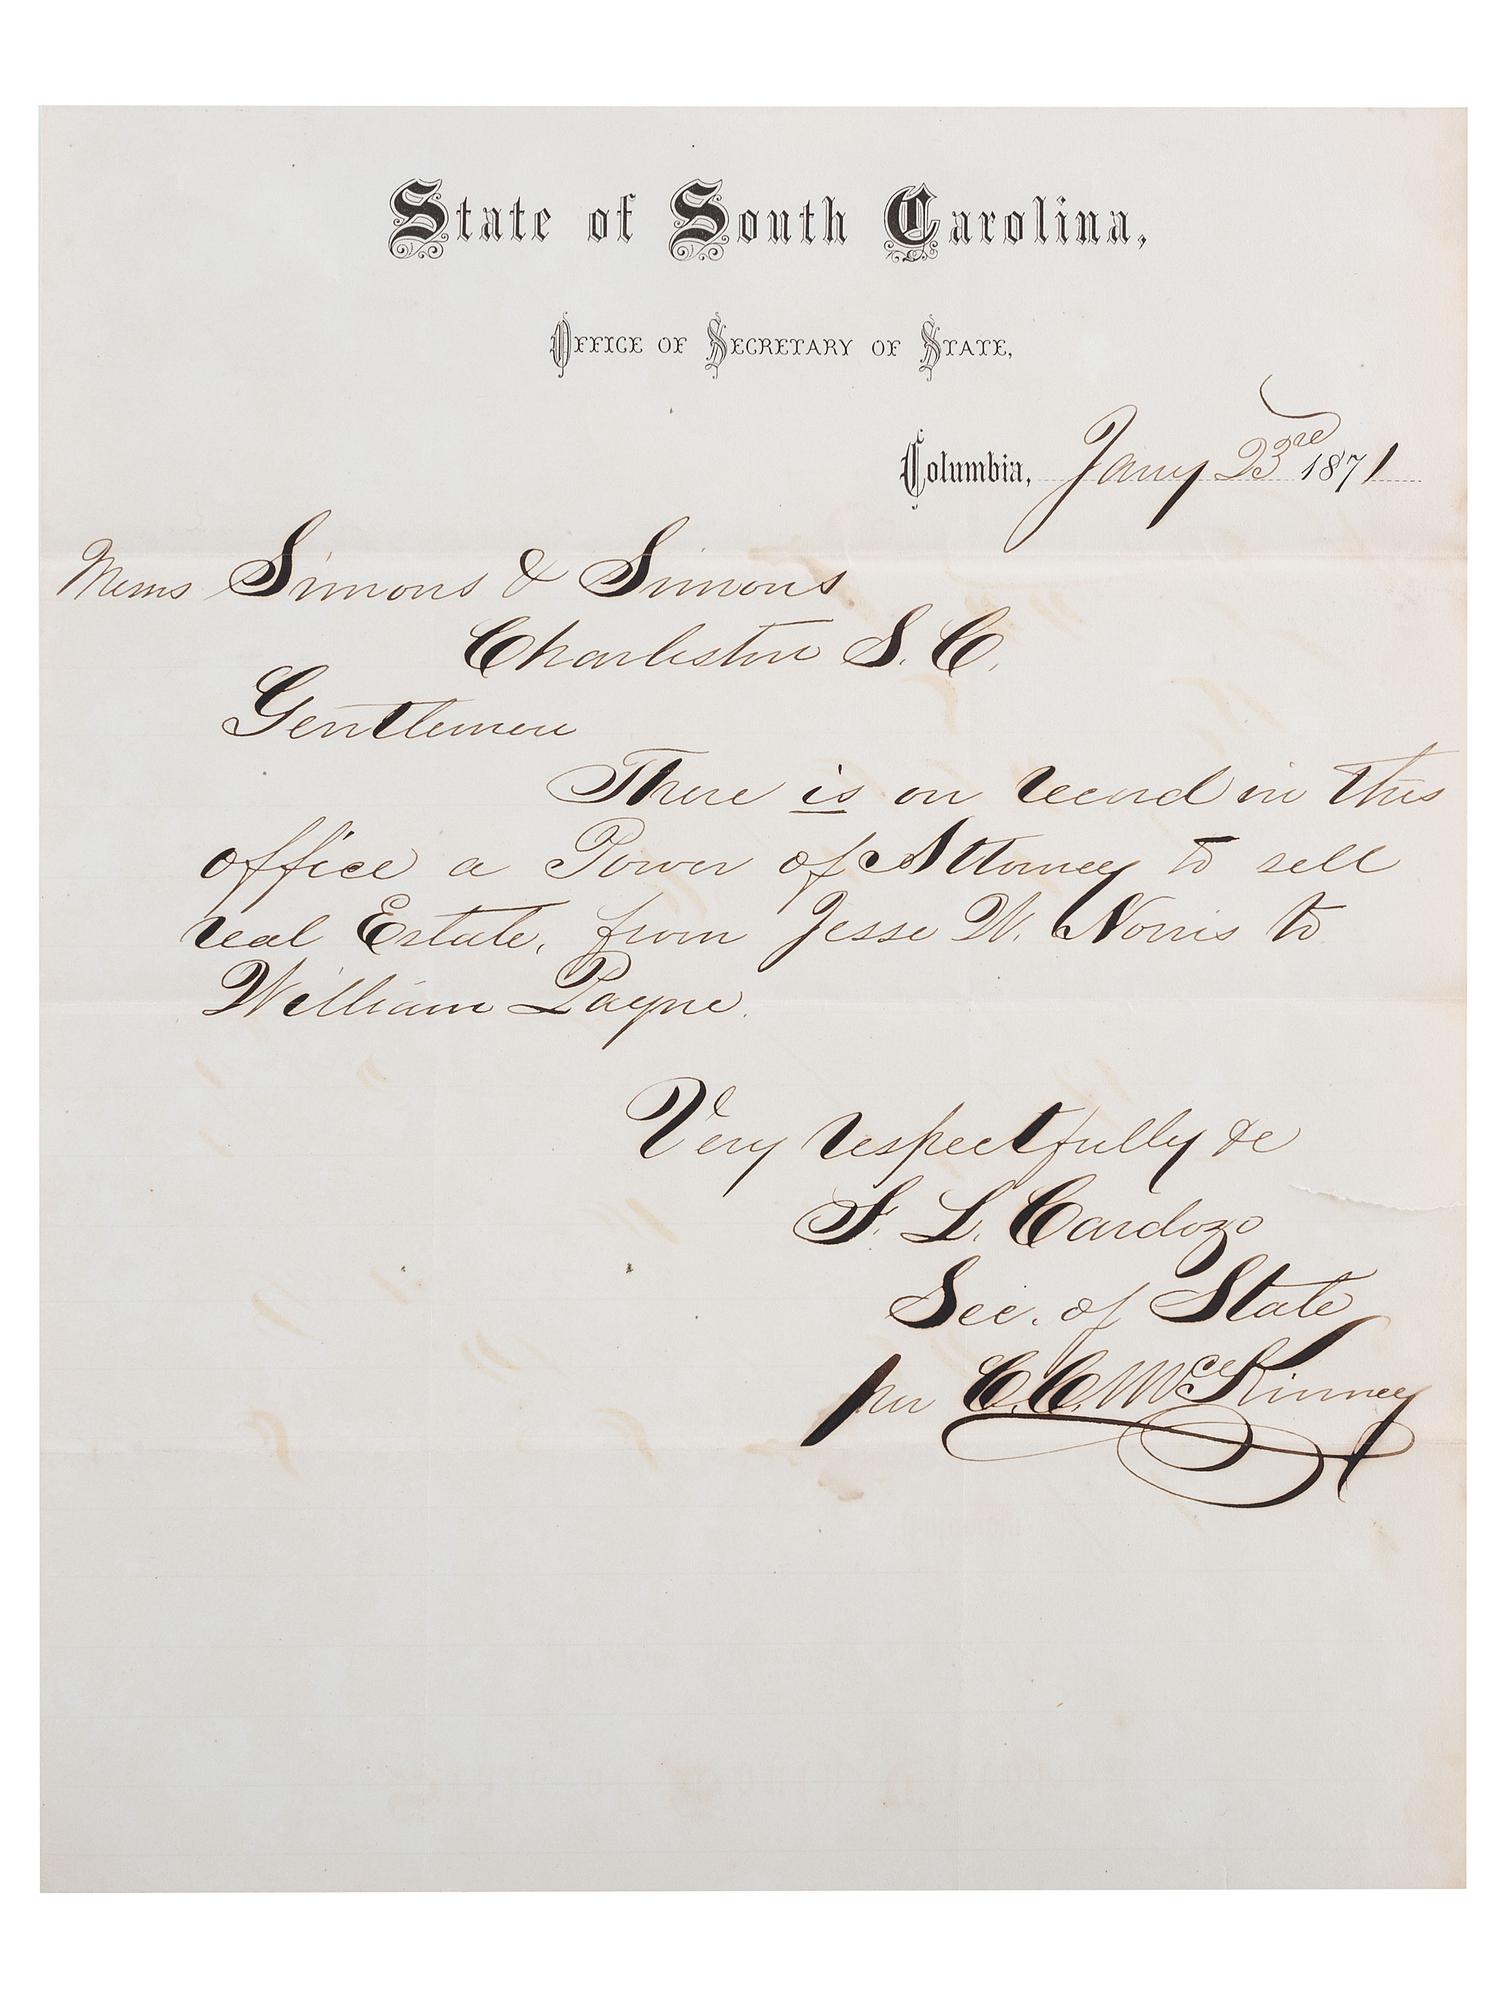 State of South Carolina,
Office of Secretary of State,
Columbia, Jany 23rd 1871
Messrs Simons & Simons
Charleston S. C.
Gentlemen
There is on record in this
office a Power of Attorney to sell
real Estate, from Jesse W. Norris to
William Payne.
Very respectfully &c
F. L. Cardozo
Sec. of State
per C. C. McKinney